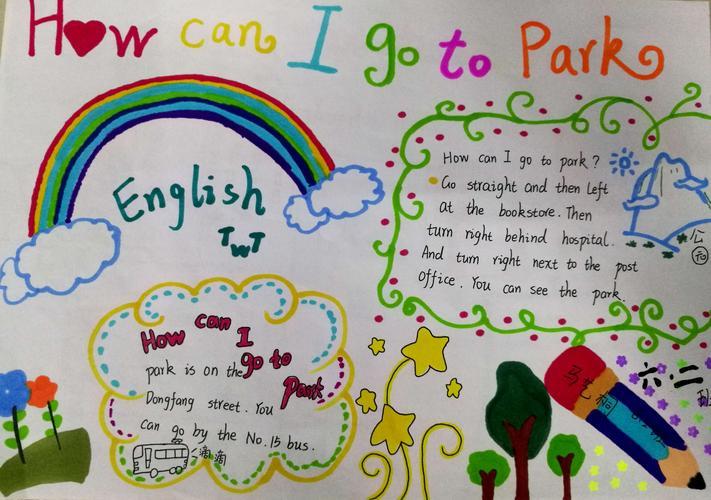 How can I go to Park
English
TwT
How can I go to park?
Go straight and then left
at the bookstore. Then
turn right behind hospital.
And turn right next to the post
Office. You can see the park.
公
How can I
go to
Park
park is on the
Dongfang street. You
can go by the No.15 bus.
滴滴
马艺
六.二